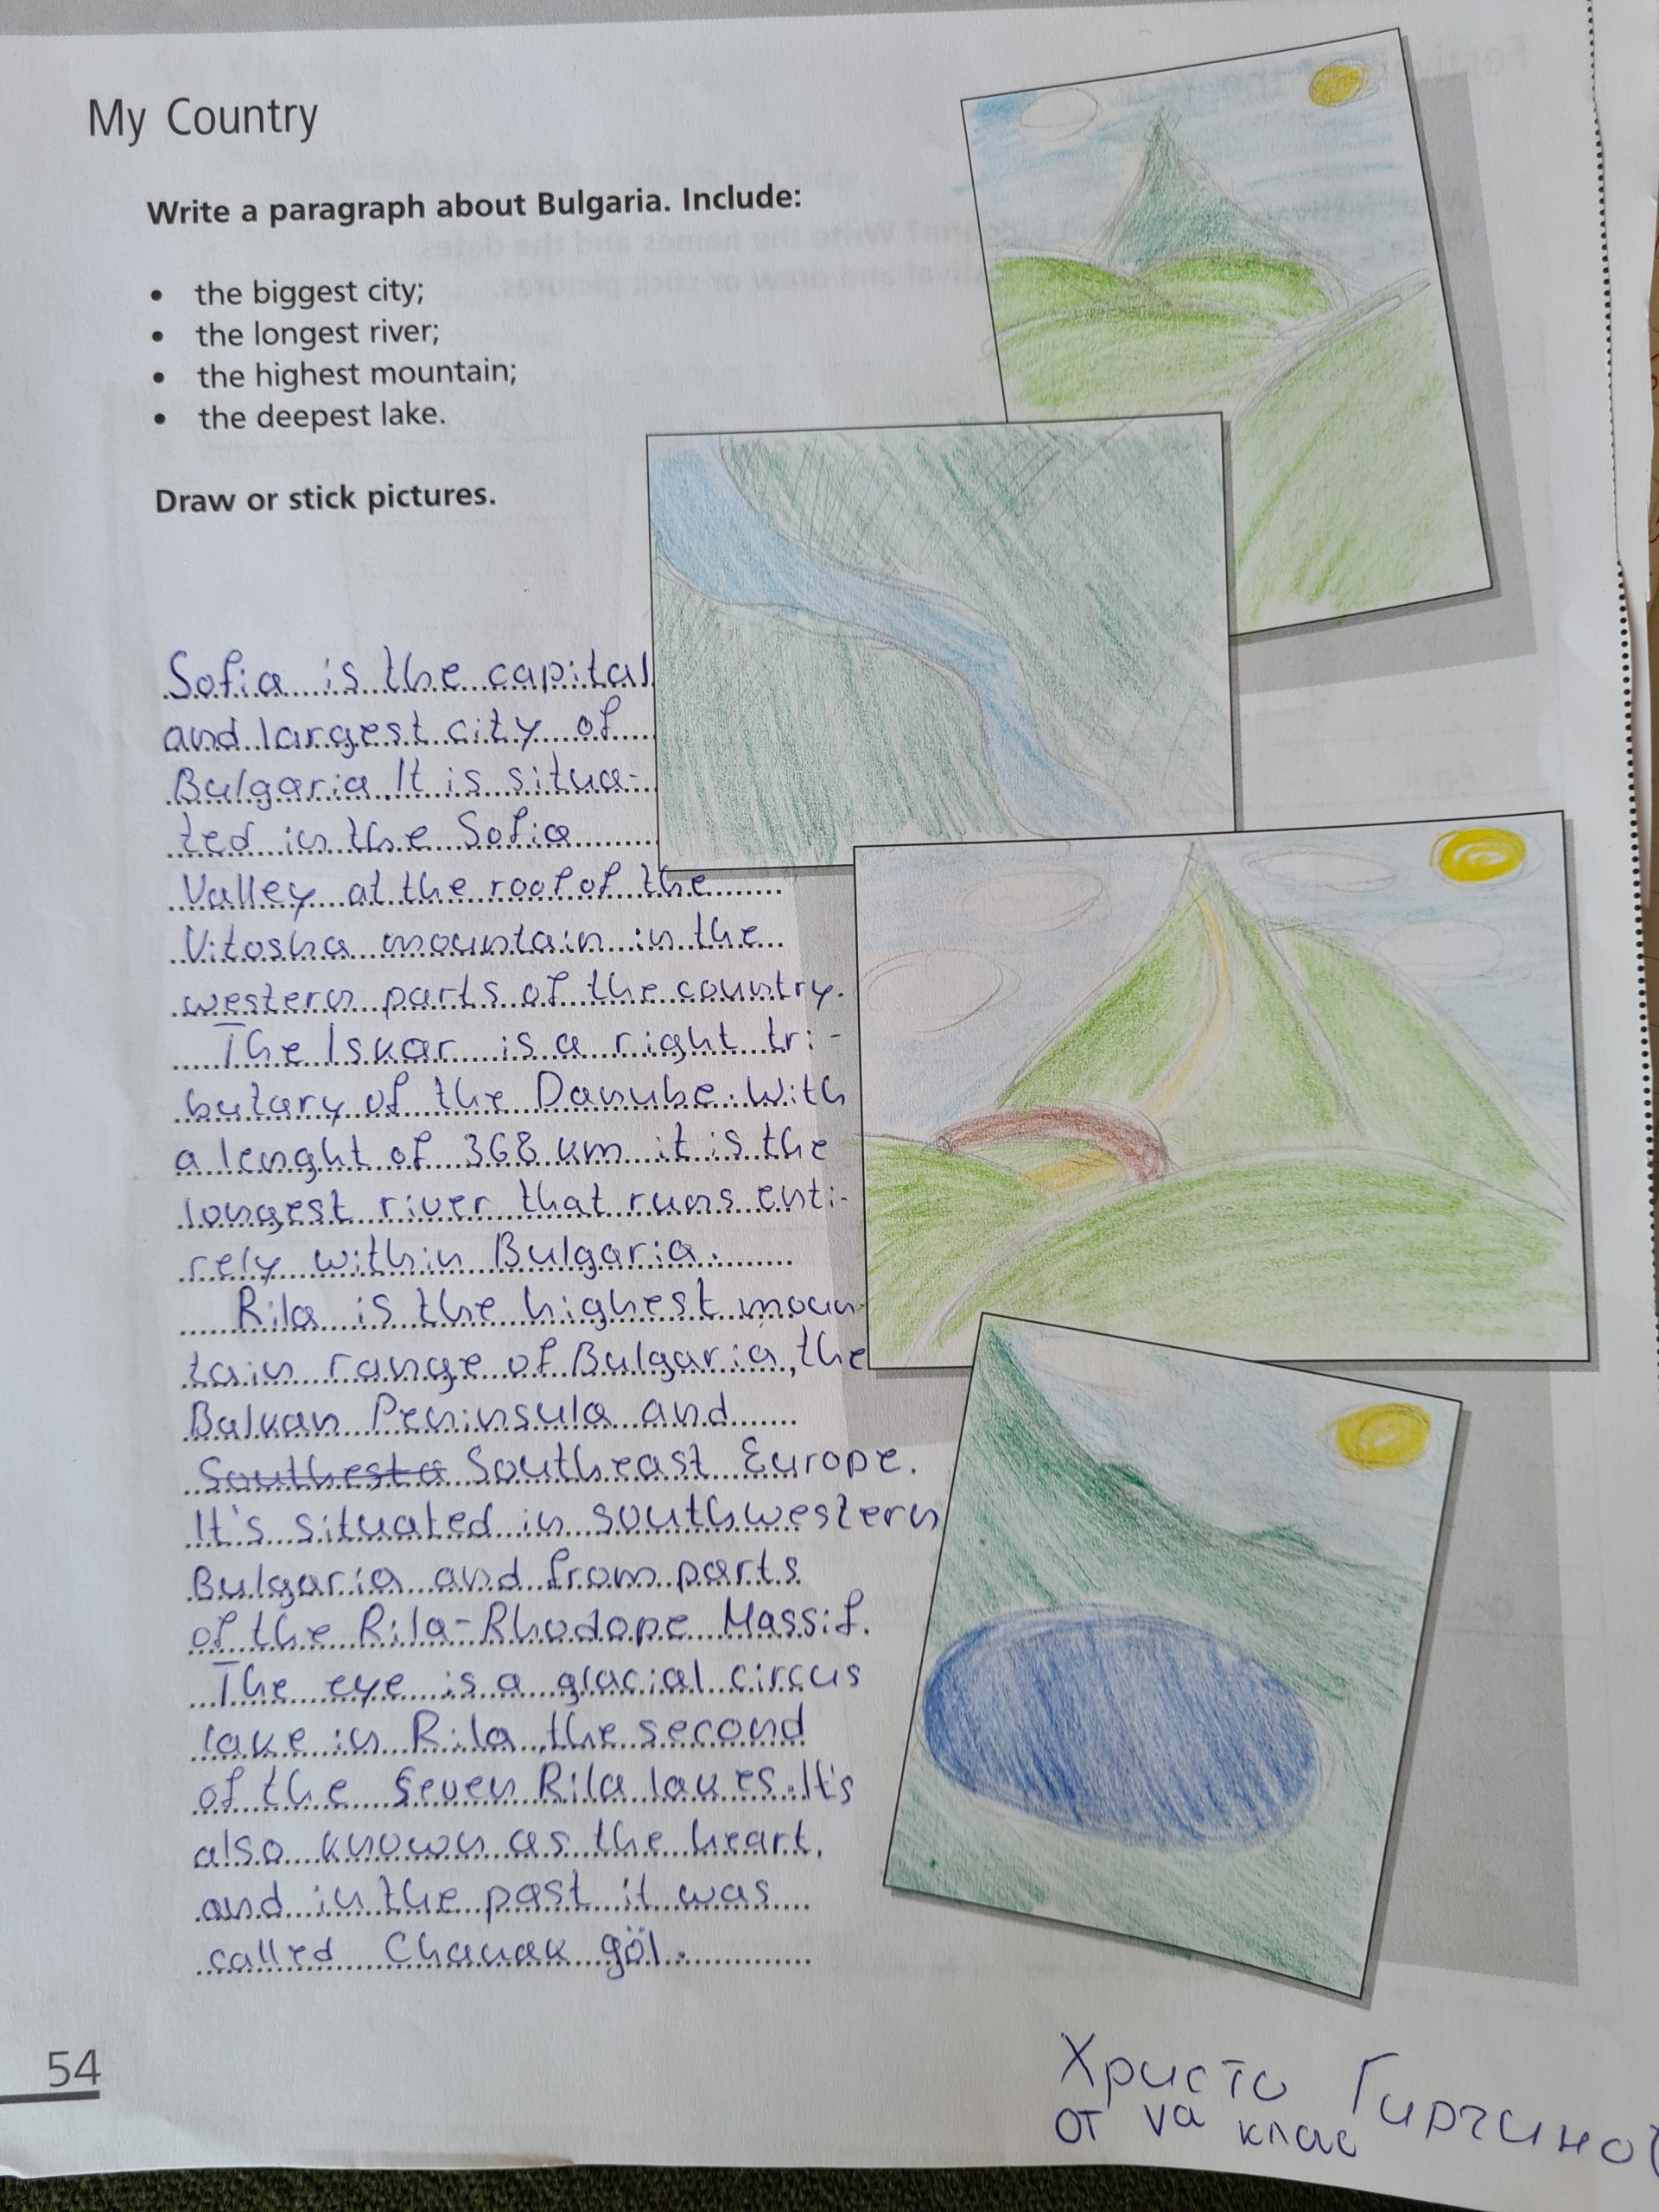 My Country
Write a paragraph about Bulgaria. Include:
• the biggest city;
• the longest river;
• the highest mountain;
• the deepest lake.
Draw or stick pictures.
Sofia is the capital
and largest city of
Bulgaria. It is situa-
ted in the Sofia
Valley at the roof of the
Vitosha mountain in the
western parts of the country.
The Iskar is a right tri-
butary of the Danube. With
a lenght of 368 km it is the
longest river that runs enti-
rely within Bulgaria.
Rila is the highest moun-
tain range of Bulgaria, the
Balkan Peninsula and
Southesta Southeast Europe.
It's situated in southwestern
Bulgaria and from parts
of the Rila-Rhodope Massif.
The eye is a glacial circus
lake in Rila, the second
of the Seven Rila lakes. It's
also known as the heart,
and in the past it was
called Chanak göl.
54
Христо
от Va клас